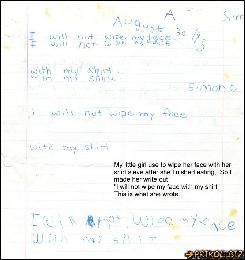 A
August
Sim
I will not wipe my face 30
I will not wipe my face
with my shirt.
with my shirt
Simone
i will not wipe my face
with my shirt
My little girl use to wipe her face with her
shirt sleeve after she finished eating. So I
made her write out
"I will not wipe my face with my shirt"
This is what she wrote.
I will not wipe my face
with my shirt
PRIKOL.BIZ